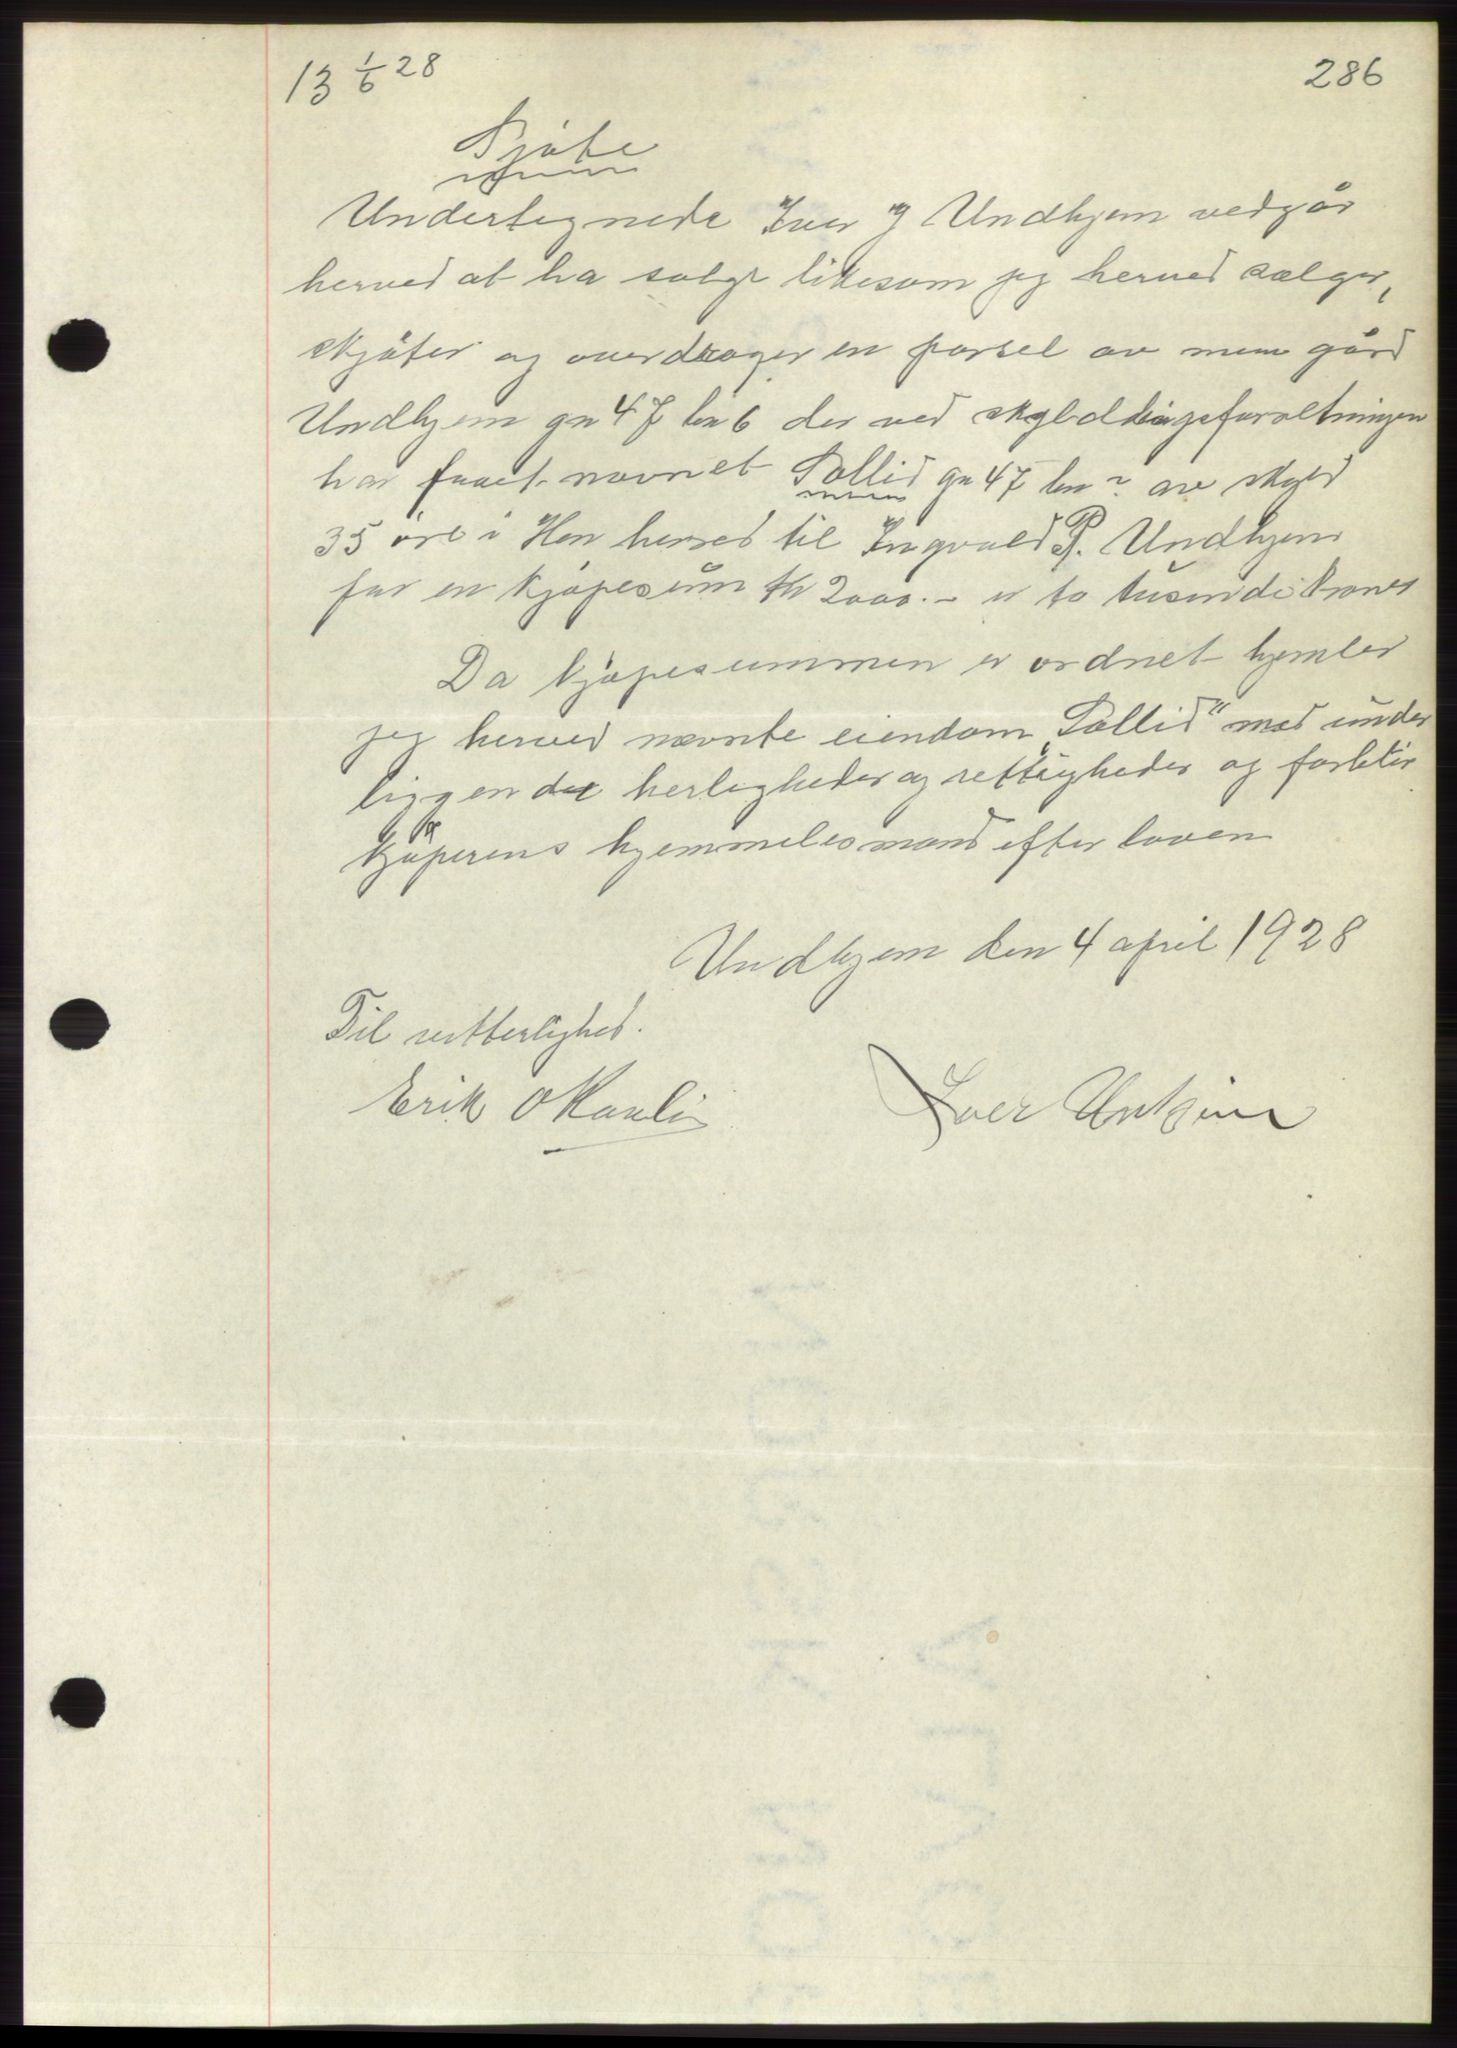 13 1/6 28
286
Skjöte
Undertegnede Iver J Undhjem vedgår
herved at ha solgt likesom jeg herved sælger,
skjöter og overdrager en parsel av min gård
Undhjem gn 47 bn 6 der ved skylddelingsforretningen
har faaet navnet Sollid gn 47 bn ? av skyld
35 öre i Hen herred til Ingvald P. Undhjem
for en kjöpesum kr 2000.- er to tusinde kroner
Da kjöpesummen er ordnet hjemler
jeg herved nævnte eiendom „Sollid" med under
liggende herligheder og rettigheder og forblir
kjöperens hjemmelsmand efter loven
Undhjem den 4 april 1928
Til vitterlighed.
Erik O Kavli
Iver Unhjem